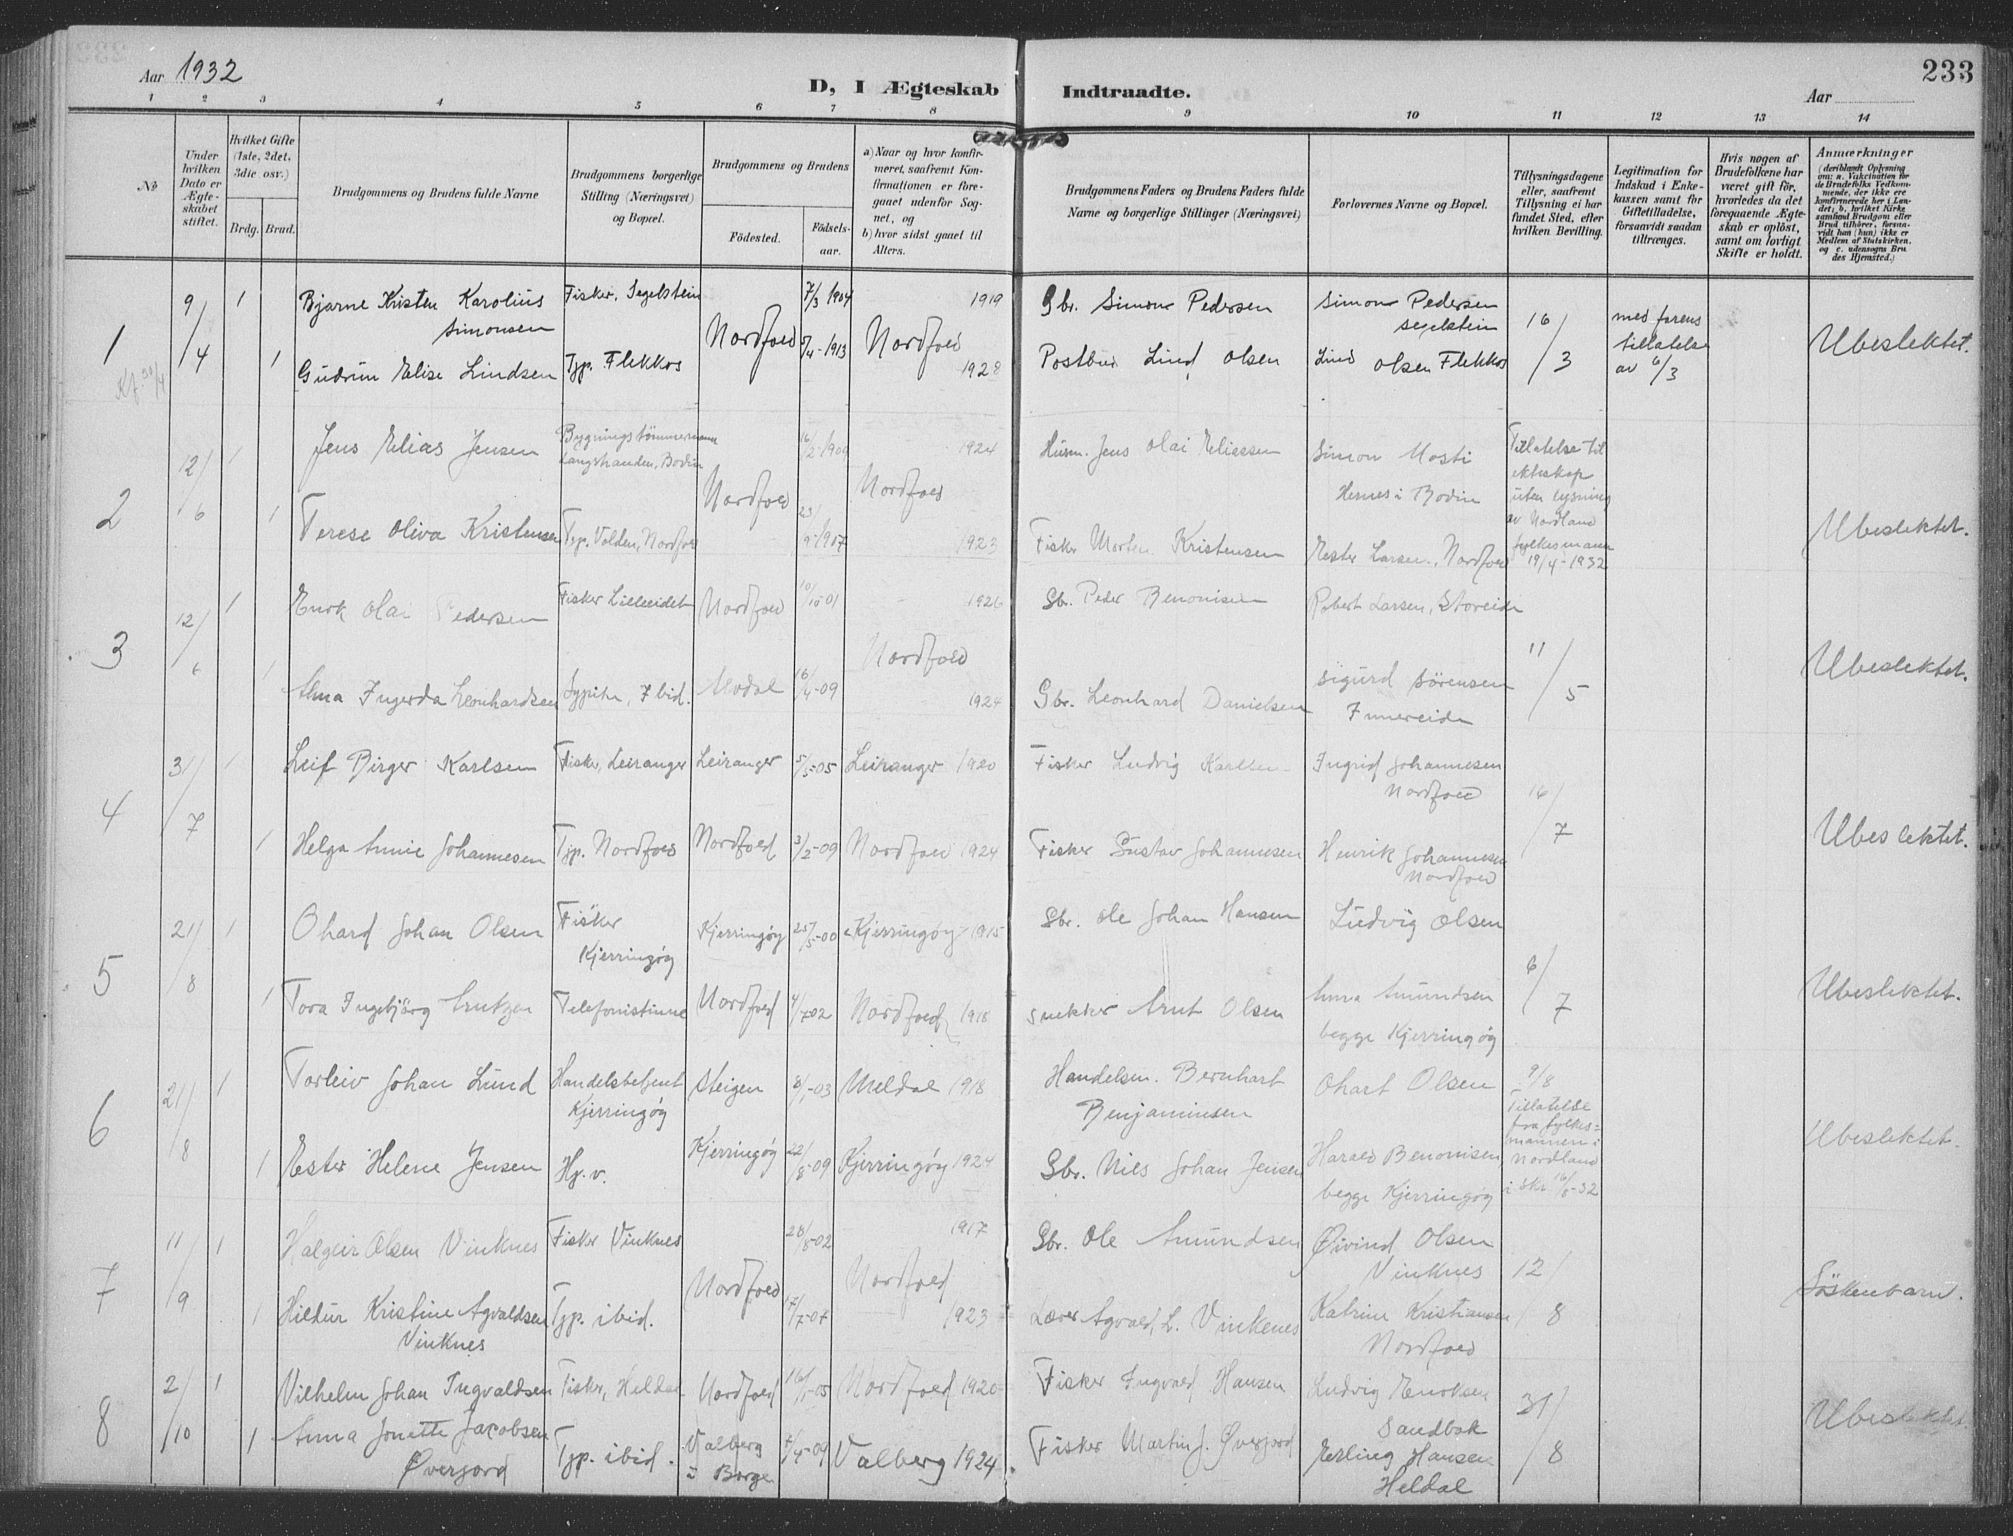 Aar 1932
D, I Ægteskab Indtraadte.
233
Aar
1 2 3 4 5 6 7 8 9 10 11 12 13 14
No
Under hvilken Dato er Ægteskabet stiftet.
Hvilket Gifte (1ste, 2det, 3die osv.)
Brdg. Brud.
Brudgommens og Brudens fulde Navne
Brudgommens borgerlige Stilling (Næringsvei) og Bopæl.
Brudgommens og Brudens
Fødested.
Fødsels-aar.
a) Naar og hvor konfirmeret, saafremt Konfirmationen er foregaaet udenfor Sognet, og
b) hvor sidst gaaet til Alters.
Brudgommens Faders og Brudens Faders fulde Navne og borgerlige Stillinger (Næringsvei)
Forlovernes Navne og Bopæl.
Tillysningsdagene eller, saafremt Tillysning ei har fundet Sted, efter hvilken Bevilling.
Legitimation for Indskud i Enkekassen samt for Giftetilladelse, forsaavidt saadan tiltrænges.
Hvis nogen af Brudefolkene har været gift før, hvorledes da det foregaaende Ægteskab er opløst, samt om lovligt Skifte er holdt.
Anmærkninger
(deriblandt Oplysning om: a. Vakcination for de Brudefolks Vedkommende, der ikke ere konfirmerede her i Landet; b. hvilket Kirkesamfund Brudgom eller Brud tilhører, forsaavidt han (hun) ikke er Medlem af Statskirken, og c. udensogns Brudes Hjemsted.)
1 9/4 1 Bjarne Kristen Karolius Simonsen Fisker, Segelstein Nordfold 7/3 1904 Nordfold 1919 Gbr. Simon Pedersen Simon Pedersen Segelstein 16/3 med farens tillatelse av 6/3 Ubeslektet.
1 Gudrun Elise Lindsen Typ. Flekkos 5/4-1913 1928 Postbud Lind Olsen Lind Olsen Flekkos
2 12/6 1 Jens Elias Jensen Bygningstømmermann Langstranden, Bodin Nordfold 16/2-1909 Nordfold 1924 Husm. Jens Olai Eliassen Simon Mosti Hernes i Bodin Tillatelse til ekteskap uten lysning av Nordland fylkesmann 19/4-1932 Ubeslektet.
1 Terese Oliva Kristensen Typ. Volden, Nordfold 1907 1923 Fisker Morten Kristensen Ester Larsen, Nordfold
3 12/6 1 Enok Olai Pedersen Fisker Lilleeidet Nordfold 10/10-01 Nordfold 1926 Gbr. Peder Benonisen Robert Larsen, Storeide 11/5 Ubeslektet.
1 Alma Ingerda Leonhardsen Sypike, Ibid. 16/4-09 1924 Gbr. Leonhard Danielsen Sigurd Sørensen
4 31/7 1 Leif Birger Karlsen Fisker, Leiranger Leiranger 5/5-05 Leiranger 1920 Fisker Ludvig Karlsen Ingrid Johannesen Nordfold 16/7 Ubeslektet.
1 Helga Annie Johannesen Typ. Nordfold Nordfold 3/2-09 Nordfold 1924 Fisker Gustav Johannesen Henrik Johannesen Nordfold
5 21/8 1 Ohard Johan Olsen Fisker Kjerringøy Kjerringøy 25/5-00 Kjerringøy 1915 Gbr. Ole Johan Hansen Ludvig Olsen 6/7 Ubeslektet.
1 Tora Ingebjörg Arntzen Telefonistinne Nordfold 4/7-02 Nordfold 1918 Snekker Arnt Olsen Anna Amundsen begge Kjerringøy
6 21/8 1 Torleiv Johan Lund Handelsbetjent Kjerringøy Steigen 8/1-03 Meldal 1918 Handelsm. Bernhart Benjaminsen Ohart Olsen 9/8 Tillatelse fra fylkesmannen i Nordland i skr 16/8-32 Ubeslektet.
1 Ester Helene Jensen Hj.v. Kjerringøy 22/8-09 Kjerringøy 1924 Gbr. Nils Johan Jensen Harald Benonisen begge Kjerringøy
7 11/9 1 Halgeir Olsen Vinknes Fisker Vinknes Nordfold 28/8-02 Nordfold 1917 Gbr. Ole Amundsen Øivind Olsen Vinknes 12/8 Söskenbarn.
1 Hildur Kristine Agvaldsen Vinknes Typ. ibid. 17/7-07 1923 Lærer Agvald L. Vinkenes Katrine Kristiansen Nordfold
8 2/10 1 Vilhelm Johan Ingvaldsen Fisker, Heldal Nordfold 16/1-05 Nordfold 1920 Fisker Ingvald Hansen Ludvig Enoksen Sandbak 31/8 Ubeslektet
1 Anna Jonette Jacobsen Øverjord Typ. ibid. Valberg i Borge 09 Valberg 1924 Fisker Martin J. Øverjord Erling Hansen Heldal